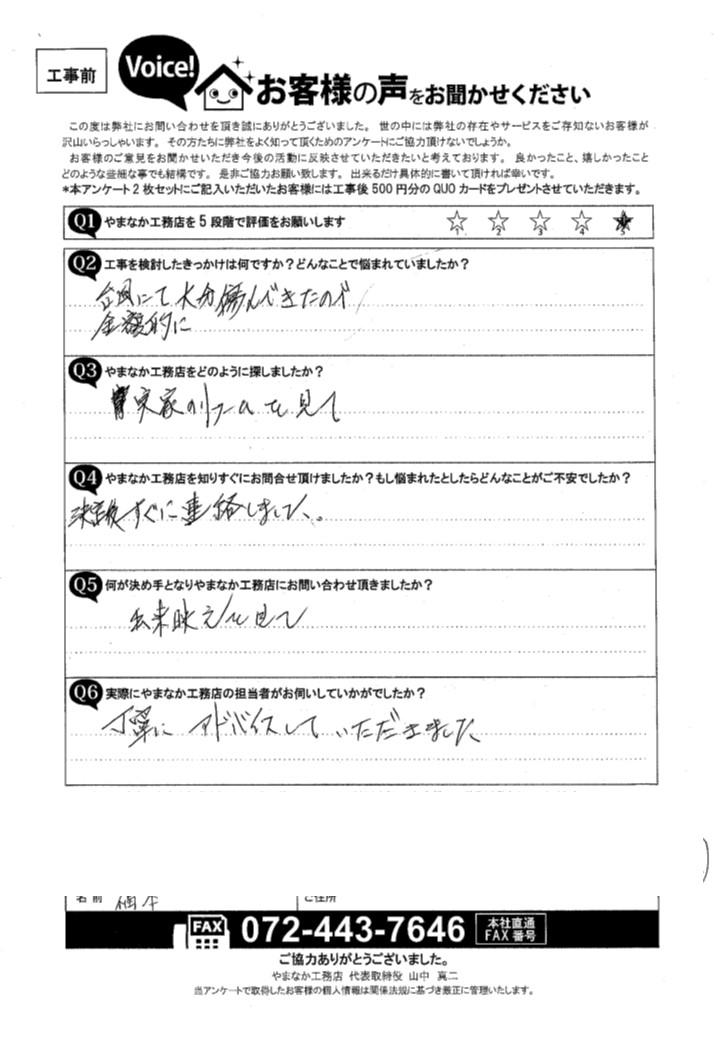 工事前
Voice!
お客様の声をお聞かせください
この度は弊社にお問い合わせを頂き誠にありがとうございました。 世の中には弊社の存在やサービスをご存知ないお客様が
沢山いらっしゃいます。 その方たちに弊社をよく知って頂くためのアンケートにご協力頂けないでしょうか。
お客様のご意見をお聞かせいただき今後の活動に反映させていただきたいと考えております。 良かったこと、嬉しかったこと
どのような些細な事でも結構です。 是非ご協力お願い致します。 出来るだけ具体的に書いて頂ければ幸いです。
*本アンケート2枚セットにご記入いただいたお客様には工事後500円分のQUOカードをプレゼントさせていただきます。
Q1 やまなか工務店を5段階で評価をお願いします
1 2 3 4 5
Q2 工事を検討したきっかけは何ですか？どんなことで悩まれていましたか？
台風にて大分傷んできたので
金額的に
Q3 やまなか工務店をどのように探しましたか？
実家のリフォームを見て
Q4 やまなか工務店を知りすぐにお問合せ頂けましたか？もし悩まれたとしたらどんなことがご不安でしたか？
すぐに連絡しました。
Q5 何が決め手となりやまなか工務店にお問い合わせ頂きましたか？
出来映えを見て
Q6 実際にやまなか工務店の担当者がお伺いしていかがでしたか？
丁寧に アドバイスして いただきました
名前 ご住所
FAX 072-443-7646 本社直通
FAX番号
ご協力ありがとうございました。
やまなか工務店 代表取締役 山中 真二
当アンケートで取得したお客様の個人情報は関係法規に基づき厳正に管理いたします。